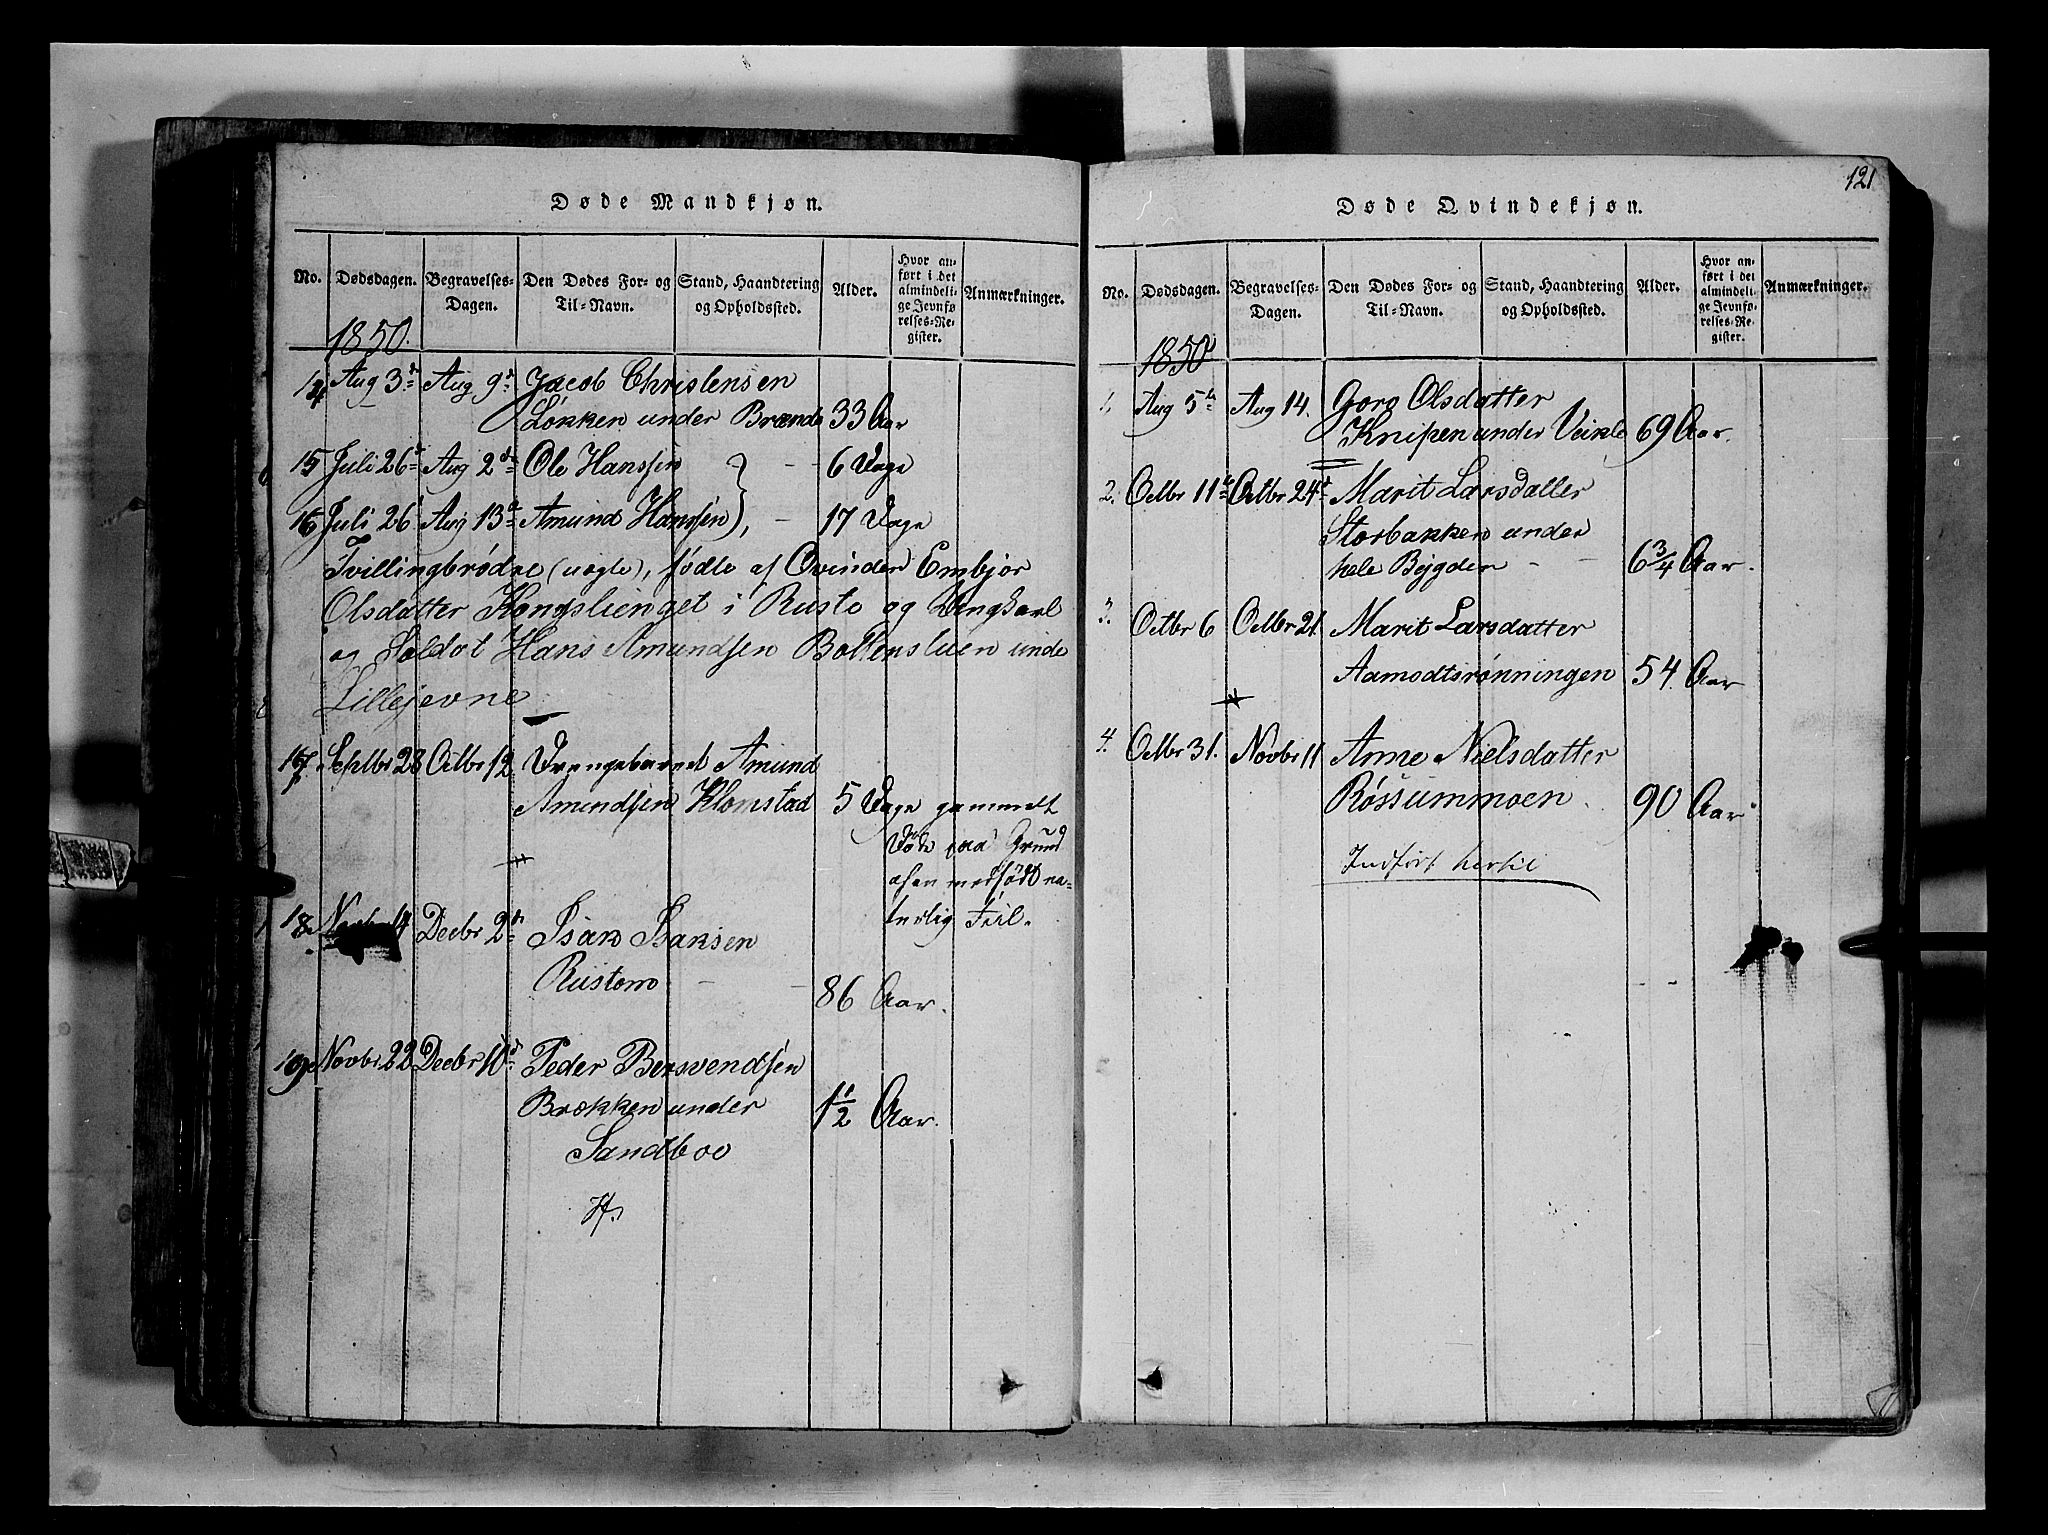 Døde Mandkjøn.
No. Dødsdagen. Begravelses-Dagen. Den Dødes For- og Til-Navn. Stand, Haandtering og Opholdssted. Alder. Hvor anført i det almindelige Jevnførelses-Register. Anmærkninger.
1850.
14 Aug 3d Aug 9d Jacob Christensen
Løkken under Brænde 33 Aar
15 Juli 26d Aug 2d Ole Hanssen - 6 Dage
16 Juli 26 Aug 13d Amund Hanssen), - 17 Dage
Tvillingbrødre (uægte), fødte af Qvinden Embjør
Olsdatter Kongslienget i Ruste og Ungkarl
og Soldat Hans Amundsen Bottensluen unde
Lillejevne
17. Septbr 28 Octbr 12 Drengebarnet Amund
Amundsen Klomstad 5 Dage gammelt
Døde paa Grund
af en medfødt na-
turlig Feil.
18. Novbr 14 Decbr 2d Isak Isaksen
Rustemo - - 86 Aar.
19. Novbr. 22 Decbr 10d Peder Bersvendsen
Brækken under 1 1/2 Aar.
Sandboe
121
Døde Qvindekjøn.
No. Dødsdagen. Begravelses-Dagen. Den Dødes For- og Til-Navn. Stand, Haandtering og Opholdssted. Alder. Hvor anført i det almindelige Jevnførelses-Register. Anmærkninger.
1850
1, Aug 5te Aug 14. Goro Olsdatter
Knipen under Veikle 69 Aar.
2. Octbr 11te Octbr 24d Marit Larsdatter
Storbakken under
hele Bygden - - 6 3/4 Aar.
3. Octbr 6 Octbr 21. Marit Larsdatter
Aamodtsrønningen 54. Aar
4. Octbr 31. Novbr 11 Anne Nielsdatter
Røssummoen. 90 Aar
Indført hertil